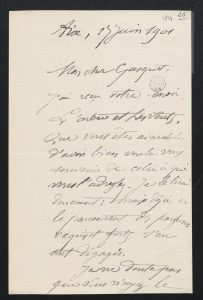 Aix, 17 juin 1901
Mon cher Gasquet,
J'ai reçu votre envoi.
L'arbre et les vents,
que vous êtes aimable
d'avoir bien voulu vous
souvenir de celui qui
vous l'adresse. Je le lirai
doucement; mais déjà en
le parcourant des parfums
exquis forts s'en
sont dégagés.
Je ne doute pas
que vous n'ayez le